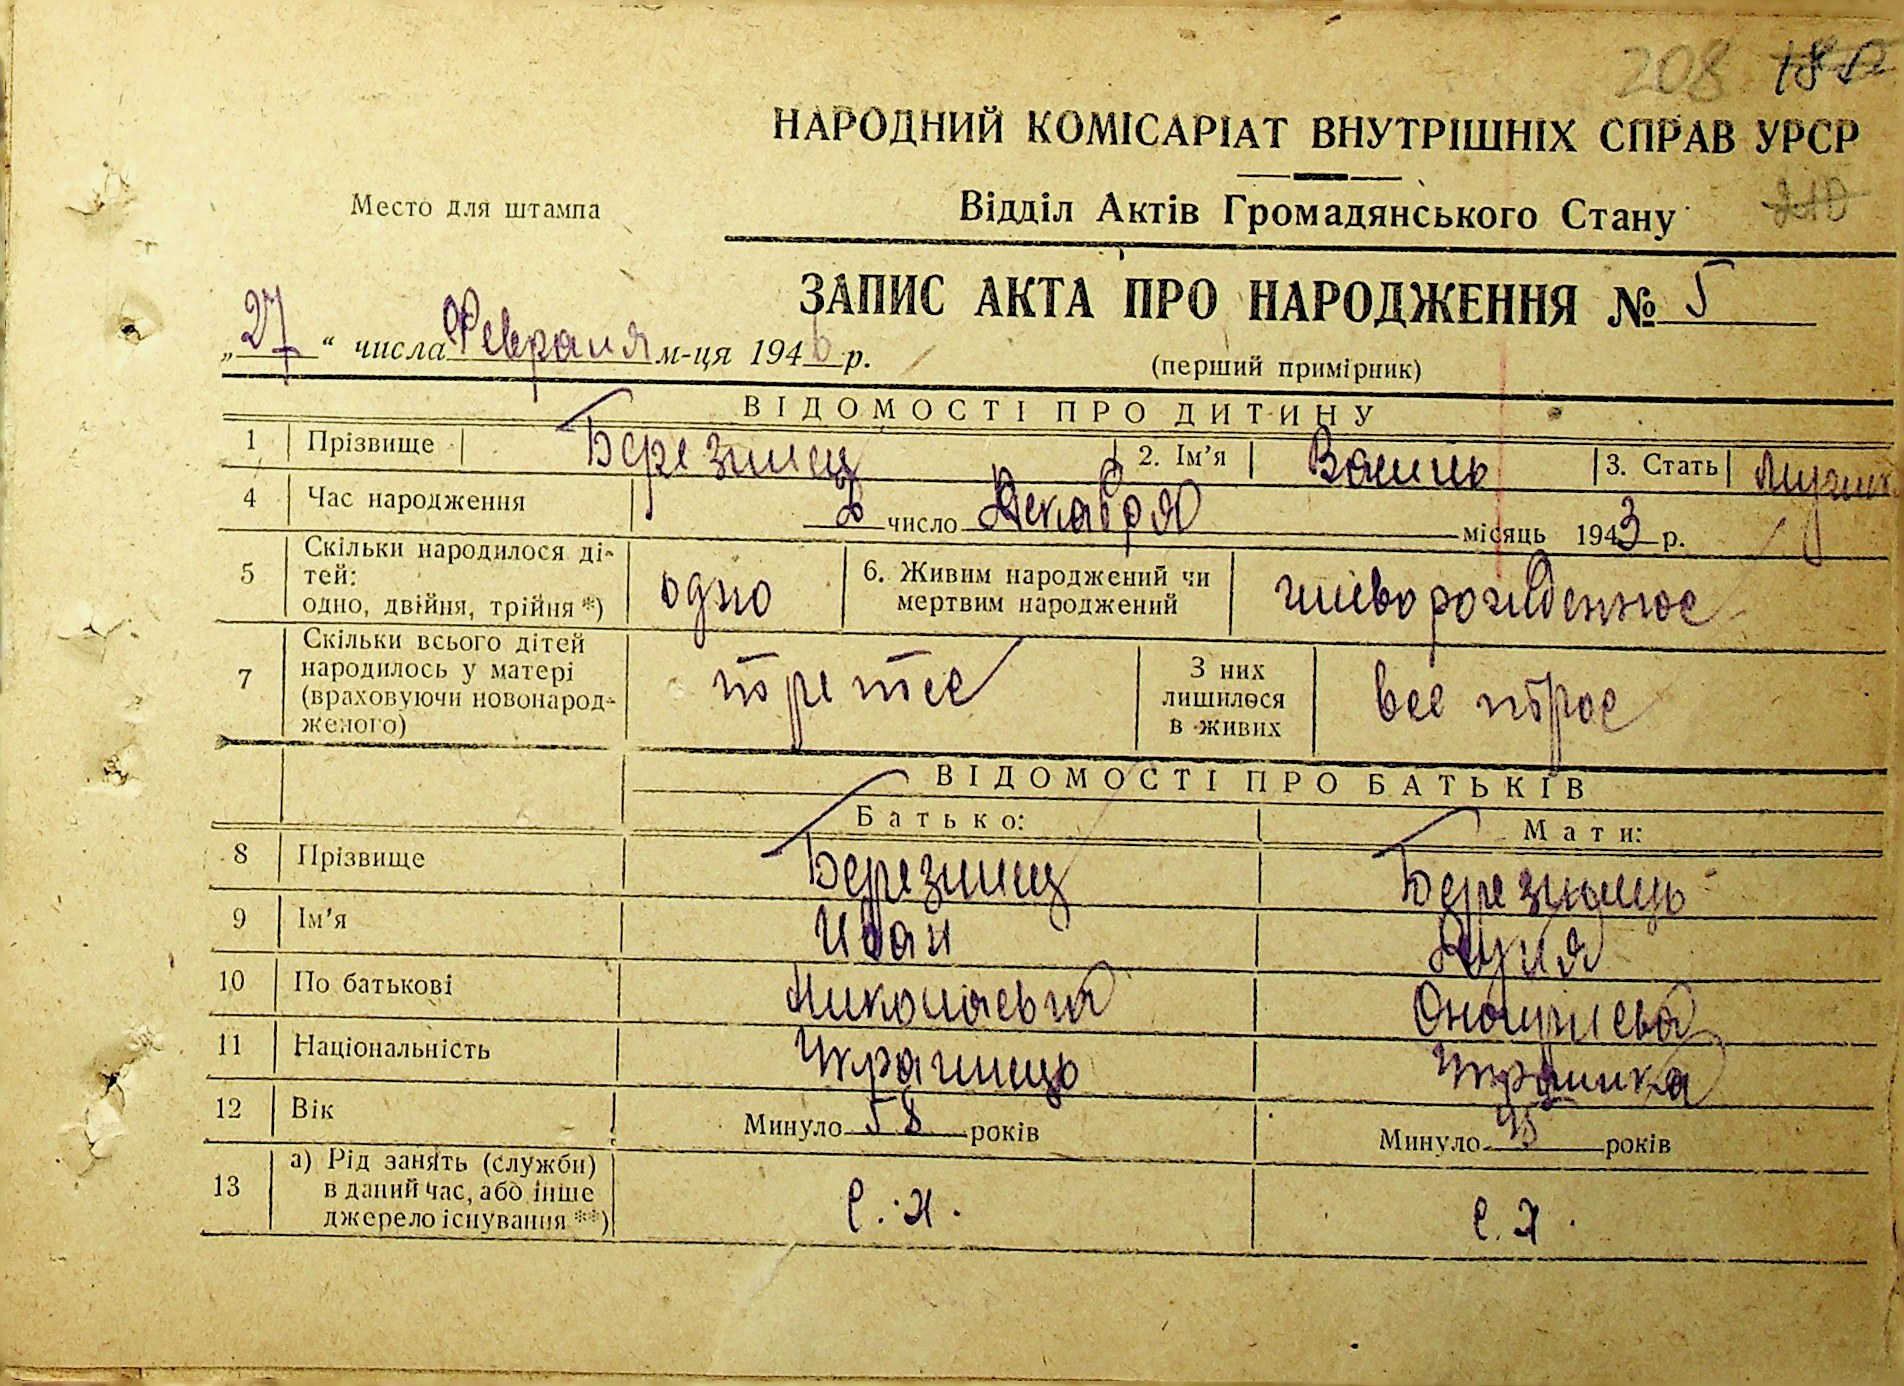 208
НАРОДНИЙ КОМІСАРІАТ ВНУТРІШНІХ СПРАВ УРСР
Место для штампа
Відділ Актів Громадянського Стану
210
ЗАПИС АКТА ПРО НАРОДЖЕННЯ № 5
„27“ числа Февраля м-ця 194 р.
(перший примірник)
ВІДОМОСТІ ПРО ДИТИНУ
1 Прізвище Березинец 2. Ім’я 3. Стать
4 Час народження число Декабря місяць 1943 р.
5 Скільки народилося ді-
тей:
одно, двійня, трійня *) одно 6. Живим народжений чи
мертвим народжений живорожденное
7 Скільки всього дітей
народилось у матері
(враховуючи новонарод-
женого) третее З них
лишилося
в живих все трое
ВІДОМОСТІ ПРО БАТЬКІВ
Батько: Мати:
8 Прізвище Березинец Березинець
9 Ім’я Иван
10 По батькові Николаевич
11 Національність Украинець Украинка
12 Вік Минуло 58 років Минуло 45 років
13 а) Рід занять (служби)
в даний час, або інше
джерело існування **) с. х. с. х.